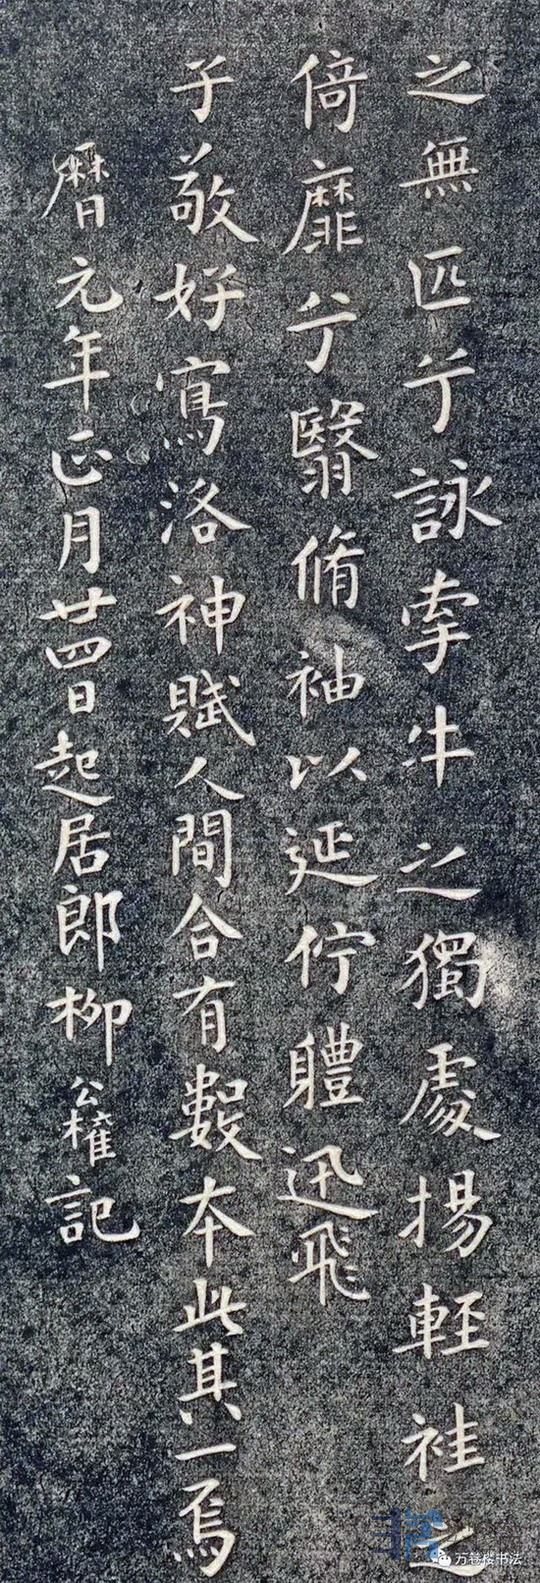 之無匹兮詠牽牛之獨處揚輕袿之
倚靡兮翳脩袖以延佇軆迅飛
子敬好寫洛神賦人間合有數本此其一焉
曆元年正月廿四日起居郎柳公權記
万卷楼书法